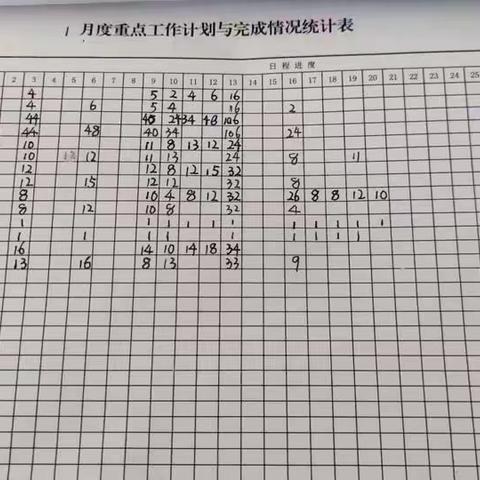 1月度重点工作计划与完成情况统计表
日程进度
2 3 4 5 6 7 8 9 10 11 12 13 14 15 16 17 18 19 20 21 22 23 24 25
4 5 2 4 6 16
4 6 5 4 16 2
44 40 24 34 48 106
44 48 40 34 106 24
10 11 8 13 12 24
10 12 11 13 24 8 11
12 12 8 12 15 32
12 15 12 12 32 8
8 10 4 8 12 32 26 8 8 12 10
8 12 10 8 32 4
1 1 1 1 1 1 1 1 1 1 1
1 1 1 1 1 1 1 1 1
16 14 10 14 18 34
13 16 8 13 33 9